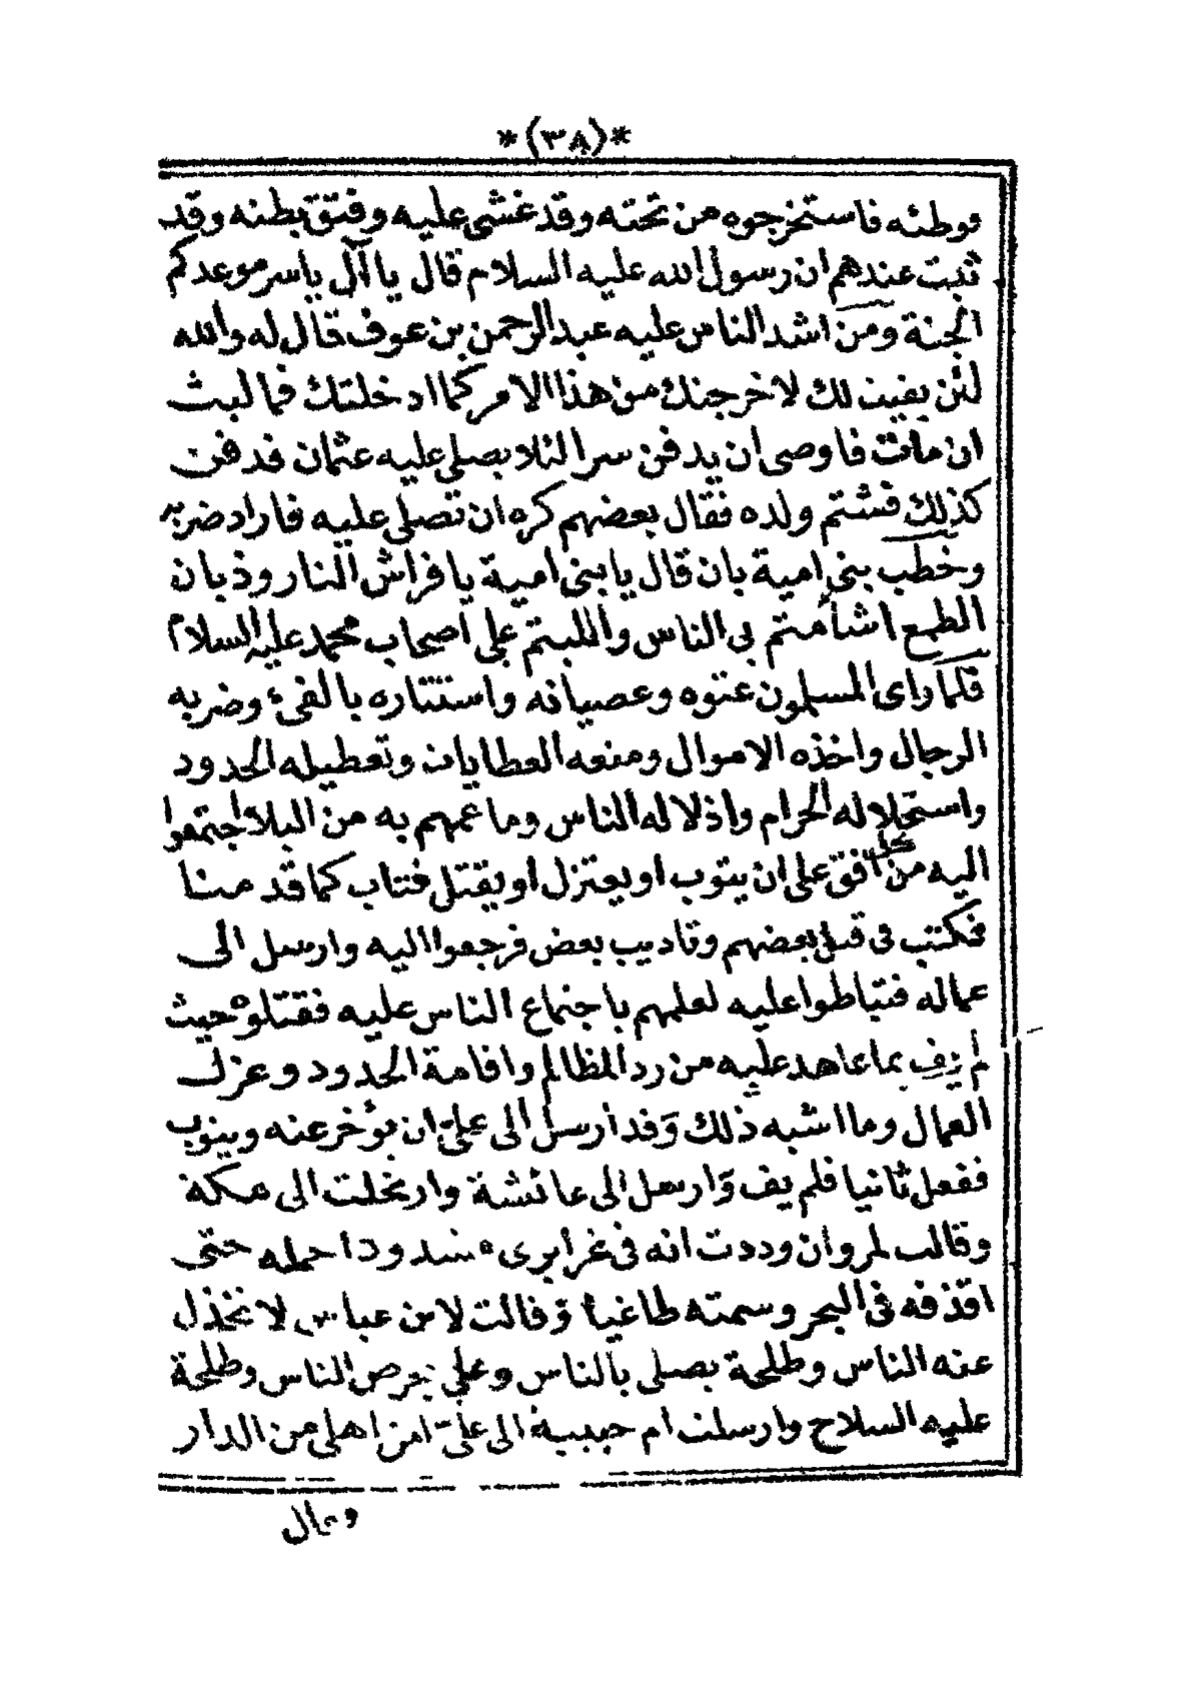 *(٣٨)*
فوطئه فاستخرجوه من تحته وقد غشى عليه وفتق بطنه وقد
ثبت عندهم ان رسول الله عليه السلام قال يا آل ياسر موعدكم
الجنة ومن اشد الناس عليه عبد الرحمن بن عوف قال له والله
لئن بقيت لك لاخرجنك من هذا الامر كما ادخلتك فما لبث
ان مات فاوصى ان يدفن سرا لئلا يصلى عليه عثمان فدفن
كذلك فشتم ولده فقال بعضهم كره ان تصلى عليه فاراد ضربه
وخطب بنى امية بان قال يا بنى امية يا فراش النار وذبان
الطمع اشأمتم بى الناس واللبتم على اصحاب محمد عليه السلام
فلما راى المسلمون عتوه وعصيانه واستئثاره بالفىء وضربه
الرجال واخذه الاموال ومنعه العطايات وتعطيله الحدود
واستحلاله الحرام واذلاله الناس وما عمهم به من البلا اجتمعوا
اليه من كل افق على ان يتوب او يعتزل او يقتل فتاب كما قدمنا
فكتب فى قتل بعضهم وتاديب بعض فرجعوا اليه وارسل الى
عماله فتباطوا عليه لعلمهم باجتماع الناس عليه فقتلوه حيث
لم يف بما عاهد عليه من رد المظالم واقامة الحدود وعزل
العمال وما اشبه ذلك وقد ارسل الى على ان يؤخر عنه ويتوب
ففعل ثانيا فلم يف وارسل الى عائشة وارتحلت الى مكة
وقالت لمروان وددت انه فى غرايرى مشدودا احمله حتى
اقذفه فى البحر وسمته طاغيا وقالت لابن عباس لا تخذل
عنه الناس وطلحة يصلى بالناس وعلى يحرص الناس وطلحة
عليه السلاح وارسلت ام حبيبة الى على امن اهلى من الدار
وقال